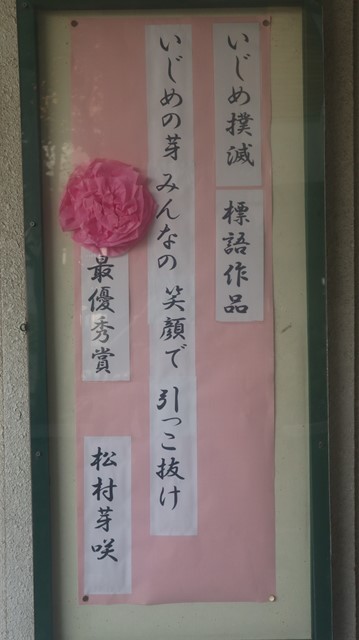 いじめ撲滅 標語作品
いじめの芽 みんなの 笑顔で 引っこ抜け
最優秀賞
松村芽咲